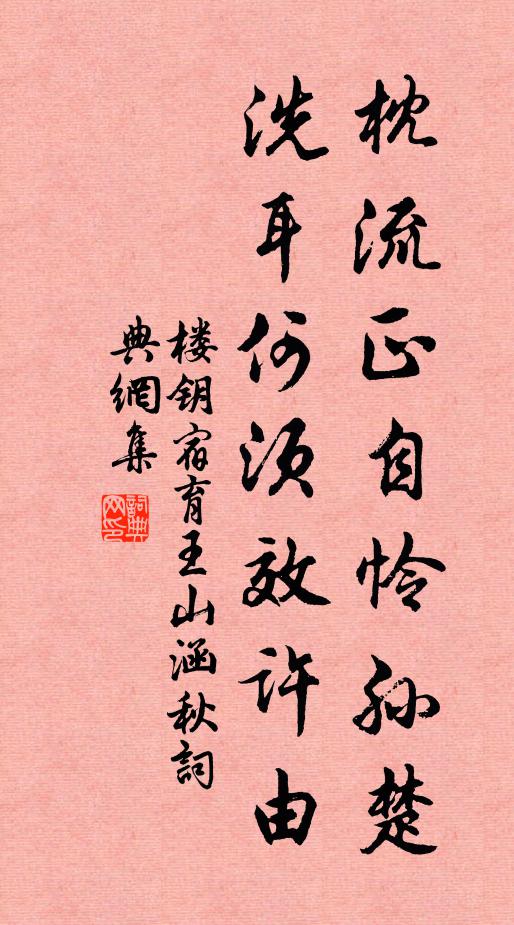 枕流正自怜孙楚
洗耳何须效许由
楼钥宿育王山涵秋詞
典網集
詞典
网印